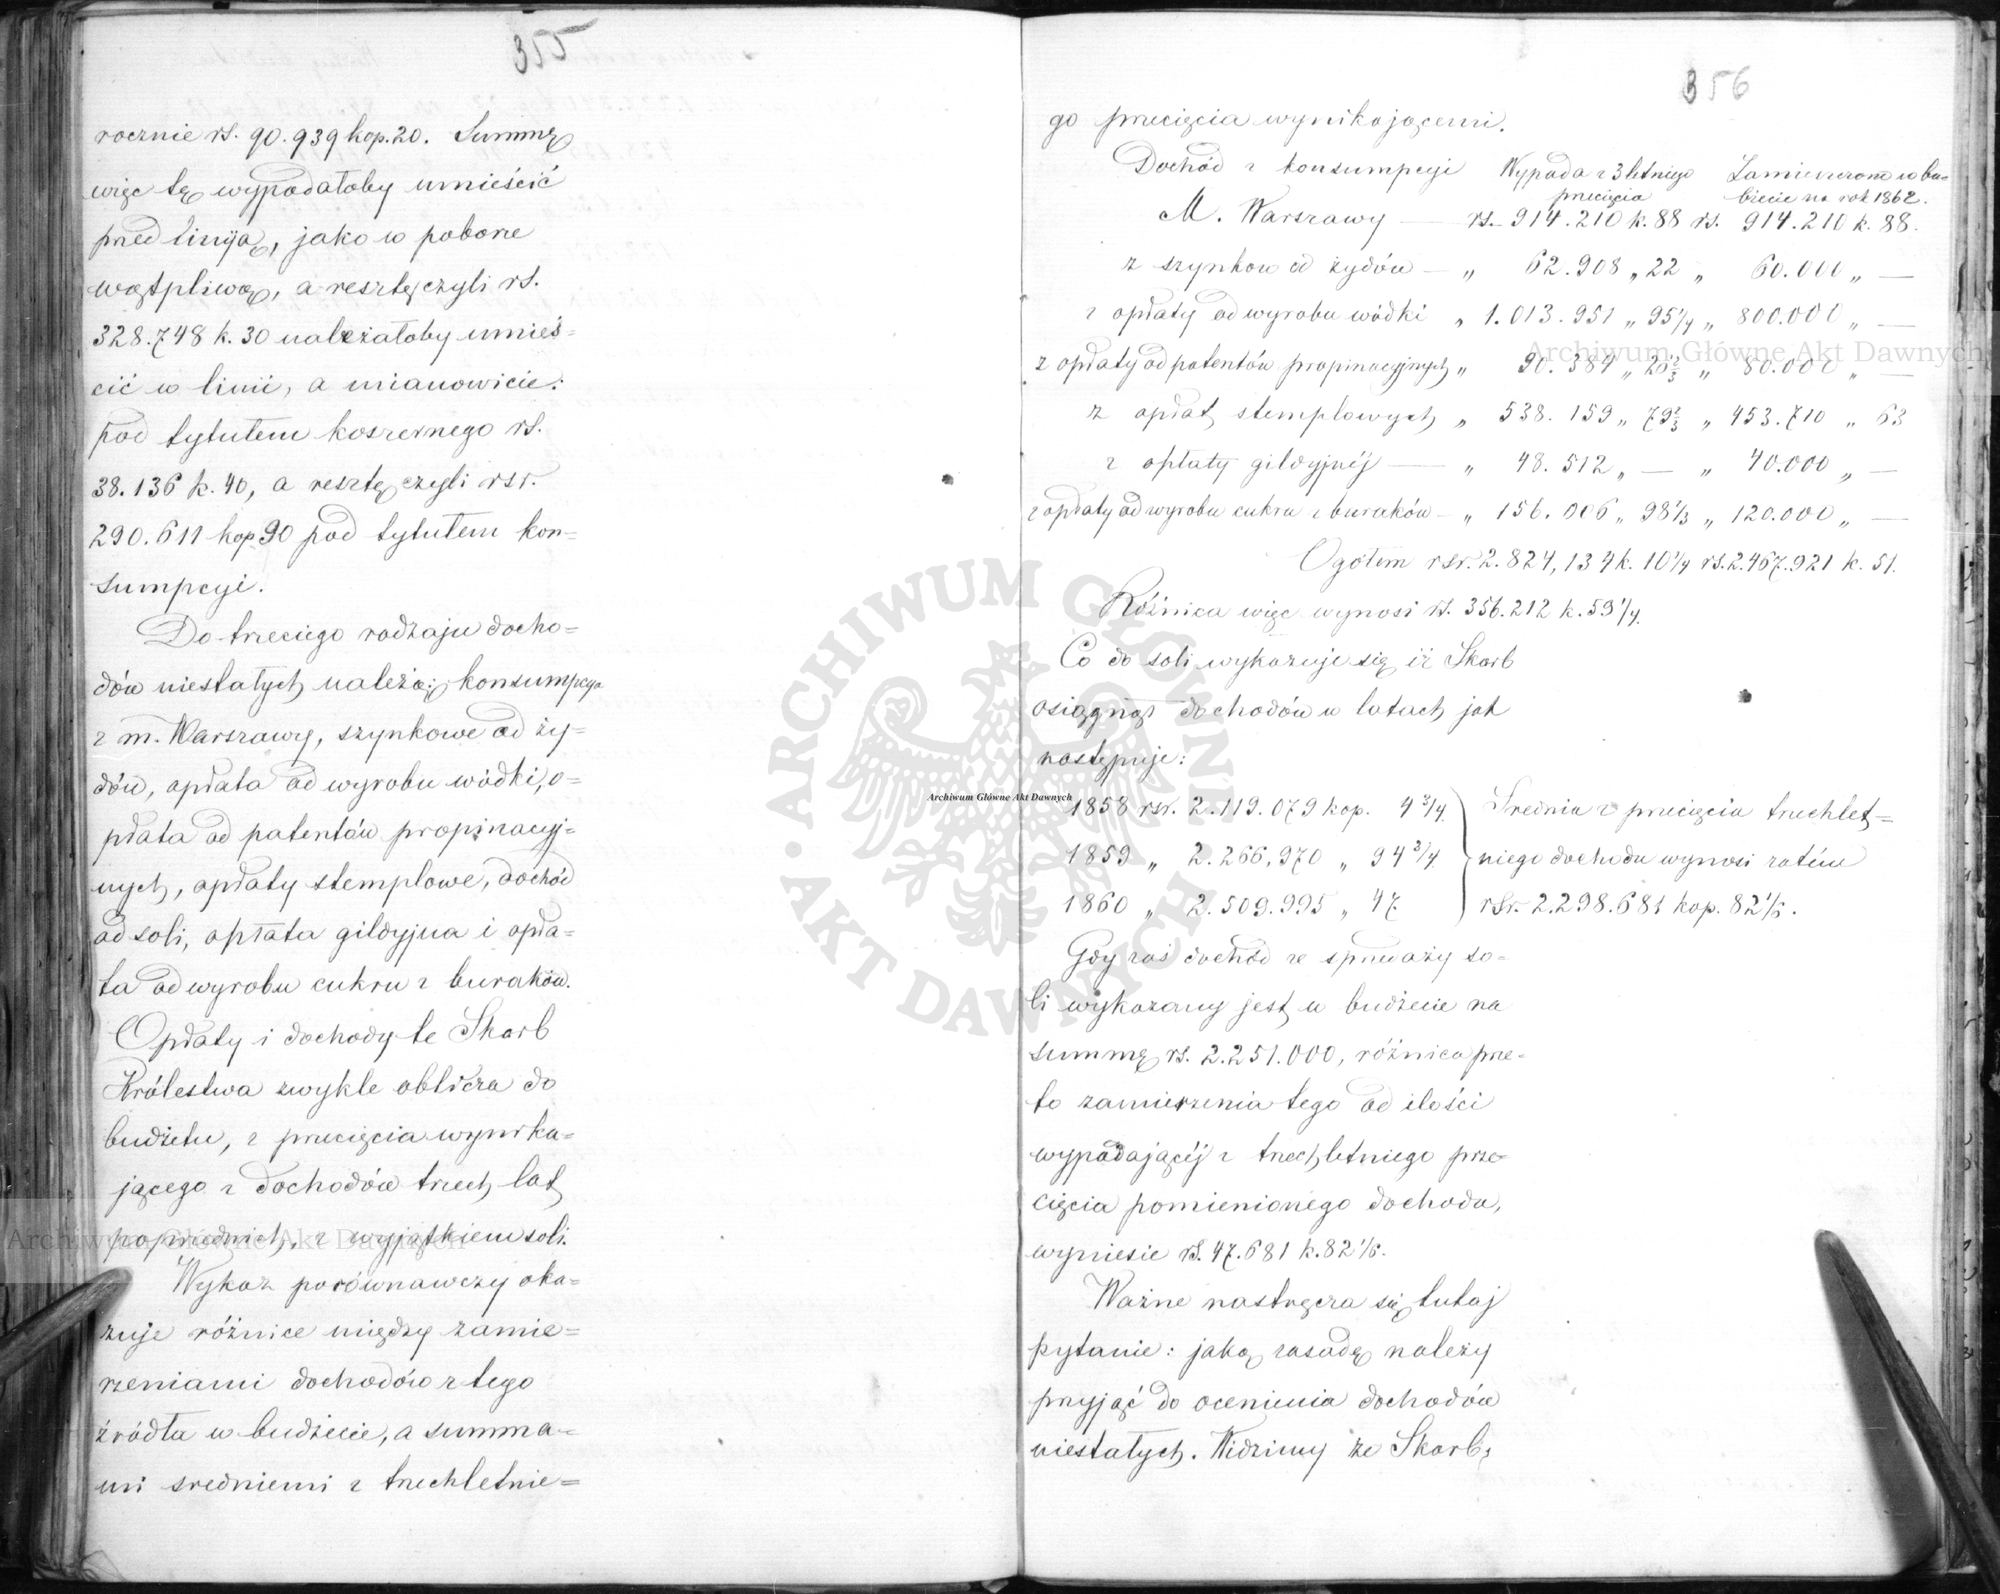 355
rocznie rs. 90.939 kop. 20. Summę
więc tę wypadałoby umieścić
przed linyją, jako w poborze
wątpliwą, a resztę czyli rs.
328.748 k. 30 należałoby umieś=
cić w linii, a mianowicie:
pod tytułem koszernego rs.
38.136 k. 40, a resztę czyli rsr.
290.611 kop 90 pod tytułem kon=
sumpcyi.
Do trzeciego rodzaju docho=
dów niestałych należą: konsumpcya
z m. Warszawy, szynkowe od ży=
dów, opłata od wyrobu wódki, o=
płata od patentów propinacyj=
nych, opłaty stemplowe, dochód
od soli, opłata gildyjna i opła=
ta od wyrobu cukru z buraków.
Opłaty i dochody te Skarb
Królestwa zwykle oblicza do
budżetu, z przecięcia wynika=
jącego z dochodów trzech lat
poprzednich, z wyjątkiem soli.
Wykaz porównawczy oka=
zuje różnice między zamie=
rzeniami dochodów z tego
źródła w budżecie, a summa=
mi średniemi z trzechletnie=
356
go przecięcia wynikającemi.
Dochód z konsumpcyi Wypada z 3 letniego Zamierzono w bu=
przecięcia dżecie na rok 1862.
M. Warszawy — rs. 914.210 k. 88 rs. 914.210 k. 88.
z szynków od żydów — „ 62.908 „ 22 „ 60.000 „ —
z opłaty od wyrobu wódki „ 1.013.951 „ 95 1/4 „ 800.000 „ —
z opłaty od patentów propinacyjnych „ 90.384 „ 26 2/3 „ 80.000 „ —
z opłat stemplowych „ 538.159 „ 79 2/3 „ 453.710 „ 63
z opłaty gildyjnéj — „ 48.512 „ — „ 40.000 „ —
z opłaty od wyrobu cukru z buraków — „ 156.006 „ 98 1/3 „ 120.000 „ —
Ogółem rsr. 2.824,134 k. 10 1/4 rs. 2.467.921 k. 51.
Różnica więc wynosi rs. 356.212 k. 59 1/4.
Co do soli wykazuje się iż Skarb
osiągnął dochodów w latach jak
następuje:
1858 rsr. 2.119.079 kop. 4 3/4. Średnia z przecięcia trzechlet=
1859 „ 2.266,970 „ 94 3/4 niego dochodu wynosi zatém
1860 „ 2.509.995 „ 47. rsr. 2.298.681 kop. 82 1/6.
Gdy zaś dochód ze sprzedaży so=
li wykazany jest w budżecie na
summę rs. 2.251.000, różnica prze=
to zamierzenia tego od ilości
wypadającéj z trzechletniego prze=
cięcia pomienionego dochodu,
wyniesie rs. 47.681 k. 82 1/6.
Ważne nastręcza się tutaj
pytanie: jaką zasadę należy
przyjąć do ocenienia dochodów
niestałych. Widzimy że Skarb,
ARCHIWUM GŁÓWNE · AKT DAWNYCH ·
Archiwum Główne Akt Dawnych
Archiwum Główne Akt Dawnych
Archiwum Główne Akt Dawnych